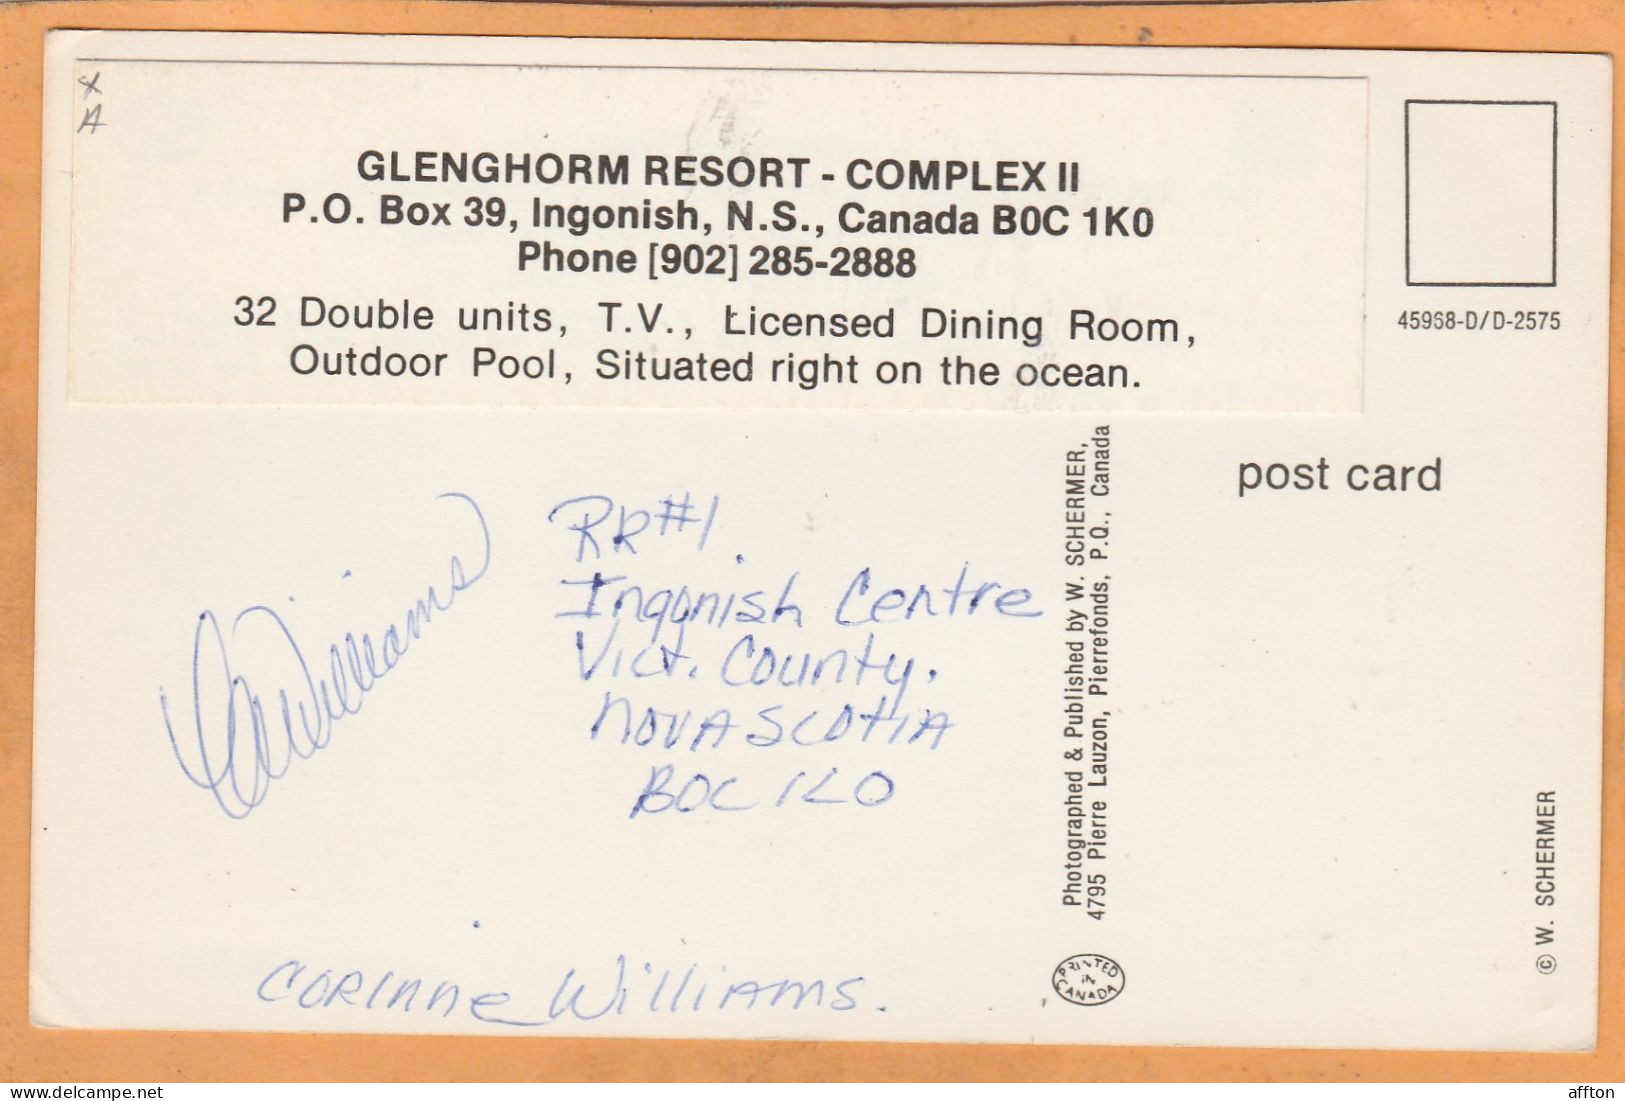 X
A
GLENGHORM RESORT - COMPLEX II
P.O. Box 39, Ingonish, N.S., Canada B0C 1K0
Phone [902] 285-2888
32 Double units, T.V., Licensed Dining Room,
Outdoor Pool, Situated right on the ocean.
45968-D/D-2575
post card
RR#1
Ingonish Centre
Vict. County,
NOVA SCOTIA
BOC 1LO
C. Williams
CORINNE Williams.
Photographed & Published by W. SCHERMER,
4795 Pierre Lauzon, Pierrefonds, P.Q., Canada
PRINTED
IN
CANADA
© W. SCHERMER
affton